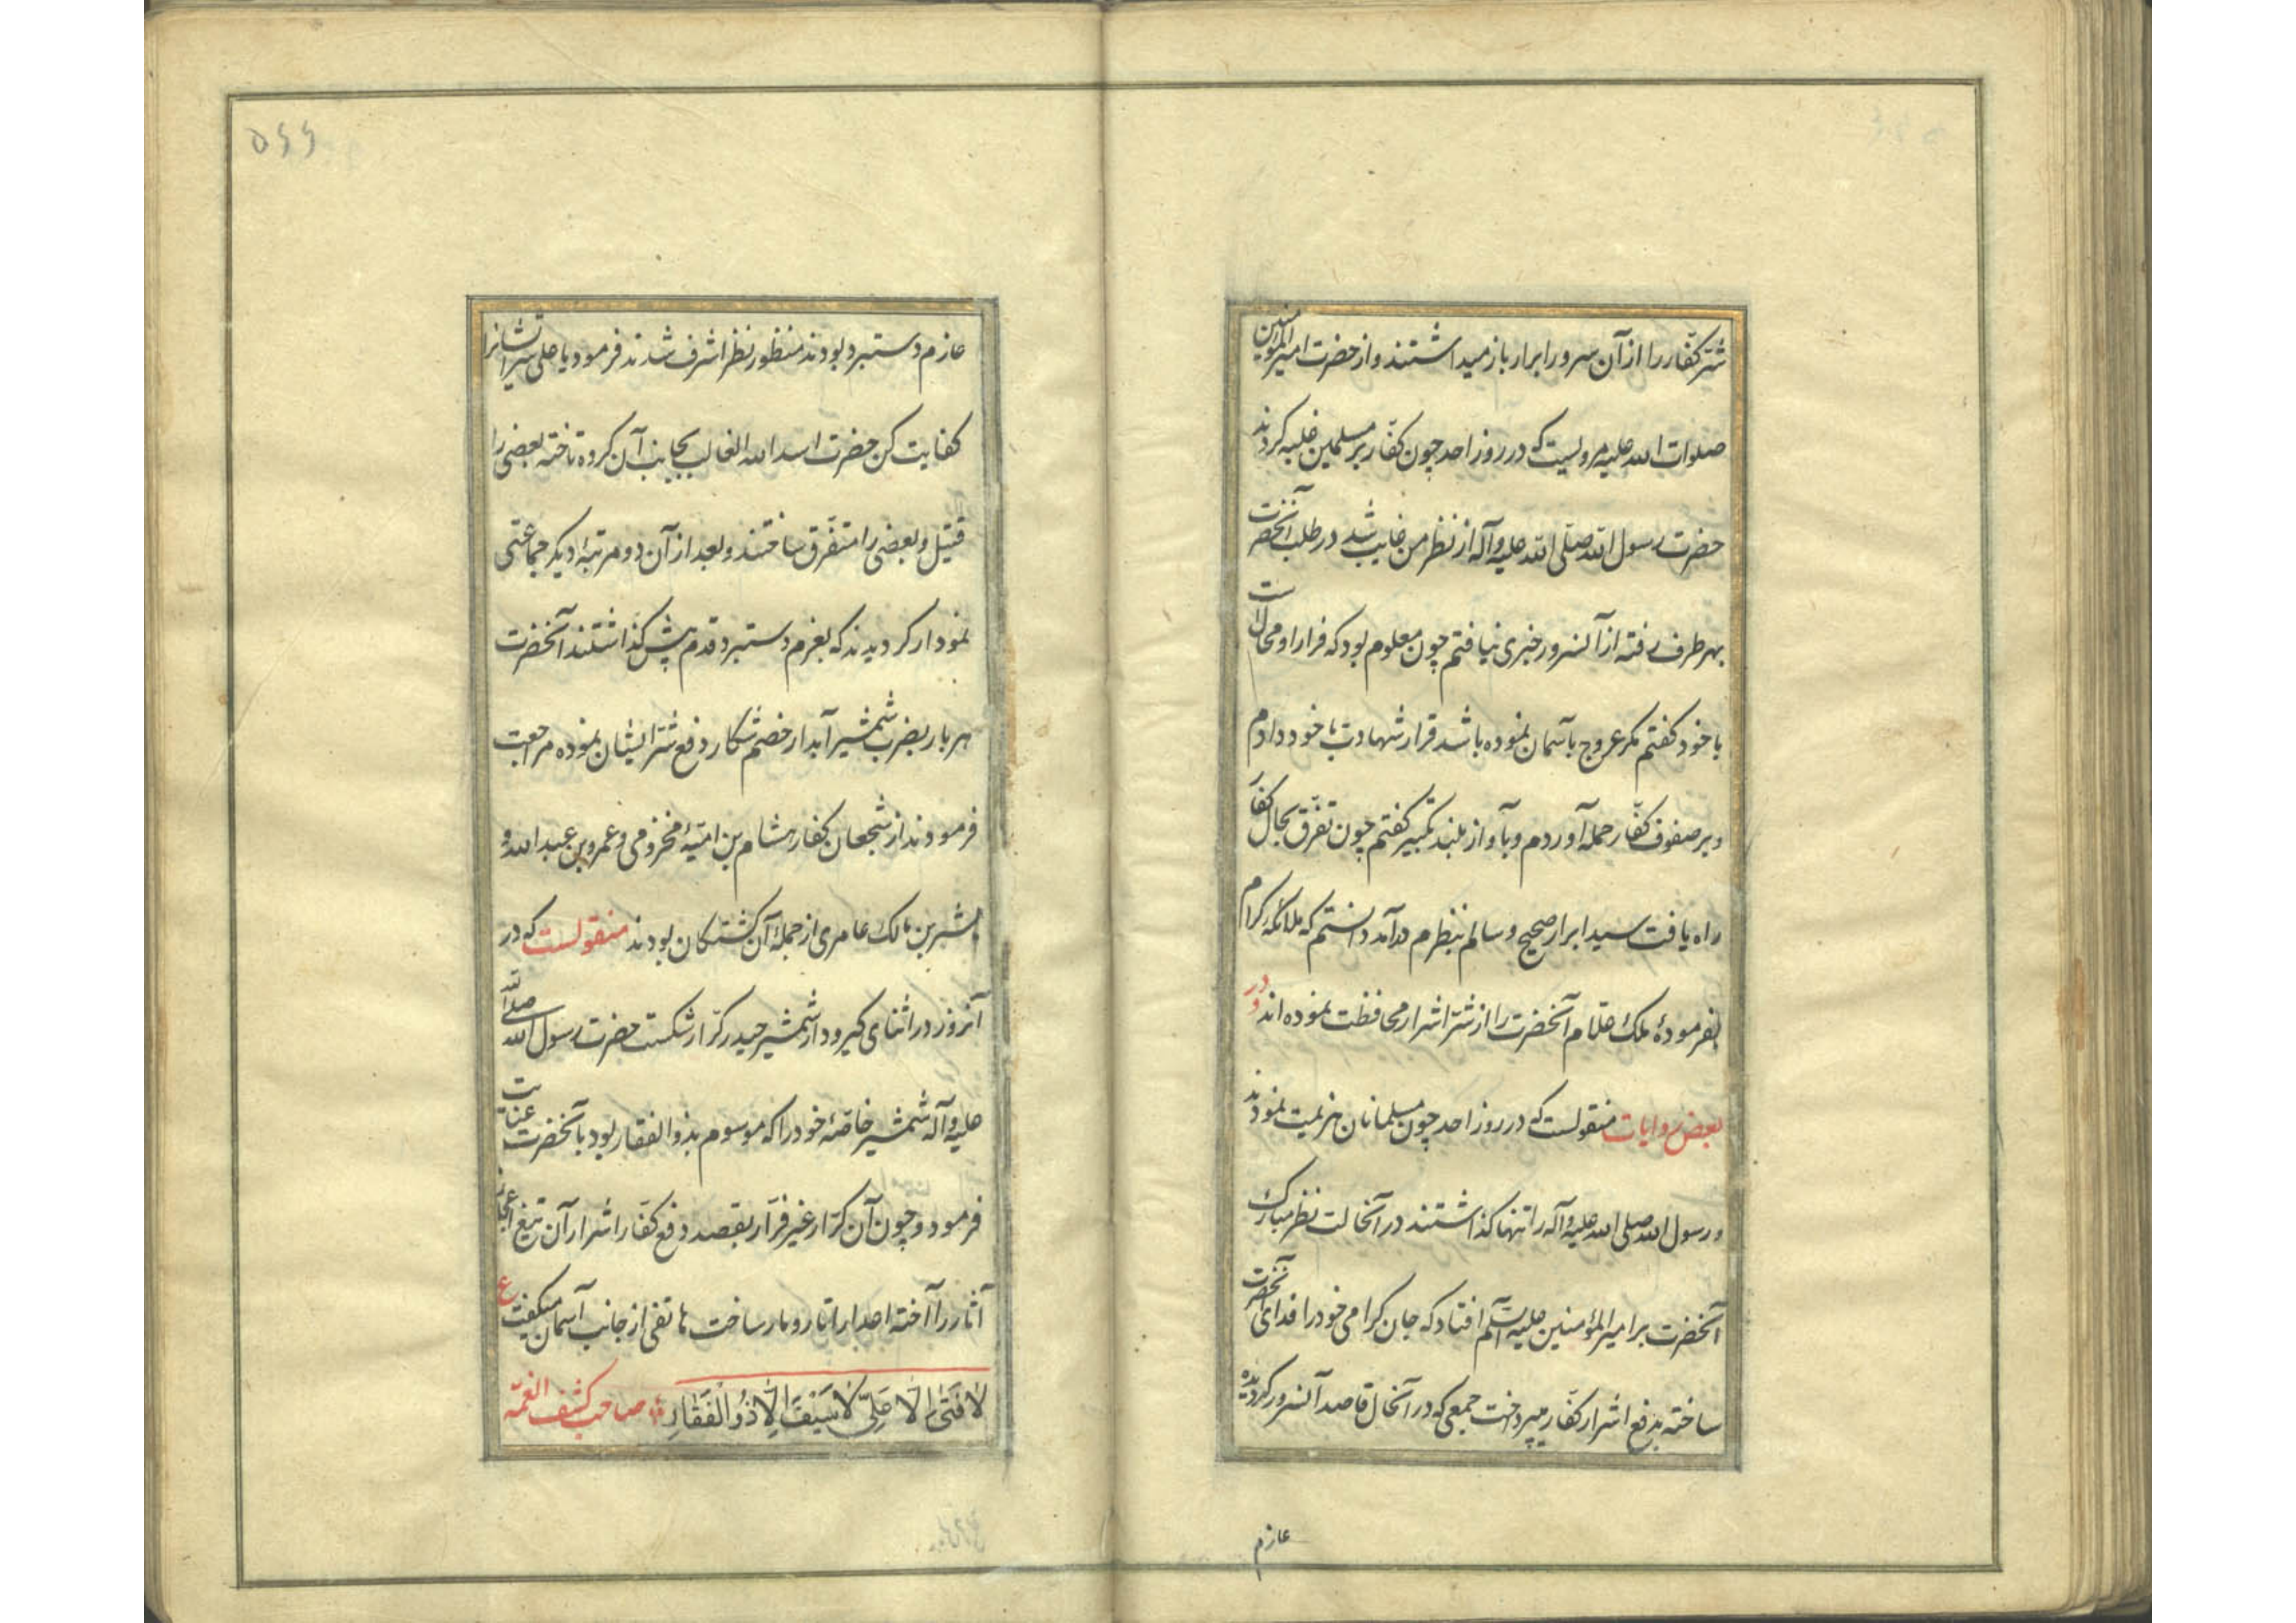 شر کفّار را از آن سرور ابرار باز میداشتند و از حضرت امیرالمؤمنین
صلوات الله علیه مرویست که در روز احد چون کفّار بر مسلمین غلبه کردند
حضرت رسول الله صلّی الله علیه وآله از نظر من غایب شد در طلب آنحضرت
بهر طرف رفته از آنسرور خبری نیافتم چون معلوم بود که فرار او محالست
با خود کفتم مکر عروج بآسمان نموده باشد قرار شهادت با خود دادم
و بر صفوف کفّار حمله آوردم و بآواز بلند تکبیر کفتم چون تفرّق بحال کفار
راه یافت سید ابرار صحیح و سالم بنظرم درآمد دانستم که ملائکه کرام
بفرمودهٔ ملک علّام آنحضرت را از شرّ اشرار محافظت نموده اند و در
بعض روایات منقولست که در روز احد چون مسلمانان هزیمت نمودند
و رسول الله صلی الله علیه وآله را تنها کذاشتند در آنحالت نظر مبارک
آنحضرت بر امیرالمؤمنین علیه السلم افتاد که جان کرامی خود را فدای آنحضرت
ساخته بدفع اشرار کفّار میپرداخت جمعی که در آنحال قاصد آنسرور کردیده
عازم
۵۶۶
عازم دستبرد بودند منظور نظر اشرف شدند فرمود یا علی شر اینانرا
کفایت کن حضرت اسد الله الغالب بجانب آن کروه تاخته بعضی را
قتیل و بعضی را متفرّق ساختند و بعد از آن دو مرتبهٔ دیکر جماعتی
نمودار کردیدند که بعزم دستبرد قدم پیش کذاشتند آنحضرت
هر بار بضرب شمشیر آبدار خصم شکار دفع شرّ ایشان نموده مراجعت
فرمودند از شجعان کفار هشام بن امیّهٔ مخزومی و عمرو بن عبد الله و
بشر بن مالک عامری از جملهٔ آن کشتکان بودند منقولست که در
آنروز در اثنای کیرودار شمشیر حیدر کرّار شکست حضرت رسول الله صلی الله
علیه وآله شمشیر خاصّهٔ خود را که موسوم بذوالفقار بود بآنحضرت عنایت
فرمود و چون آن کرّار غیر فرّار بقصد دفع کفّار اشرار آن تیغ اعجاز
آثار را آخته اعدا را تار و مار ساخت هاتفی از جانب آسمان میکفت ع
لَا فَتٰی اِلَّا عَلِیّ لَا سَیْفَ اِلَّا ذُوالْفَقَارِ صاحب کشف الغمّه